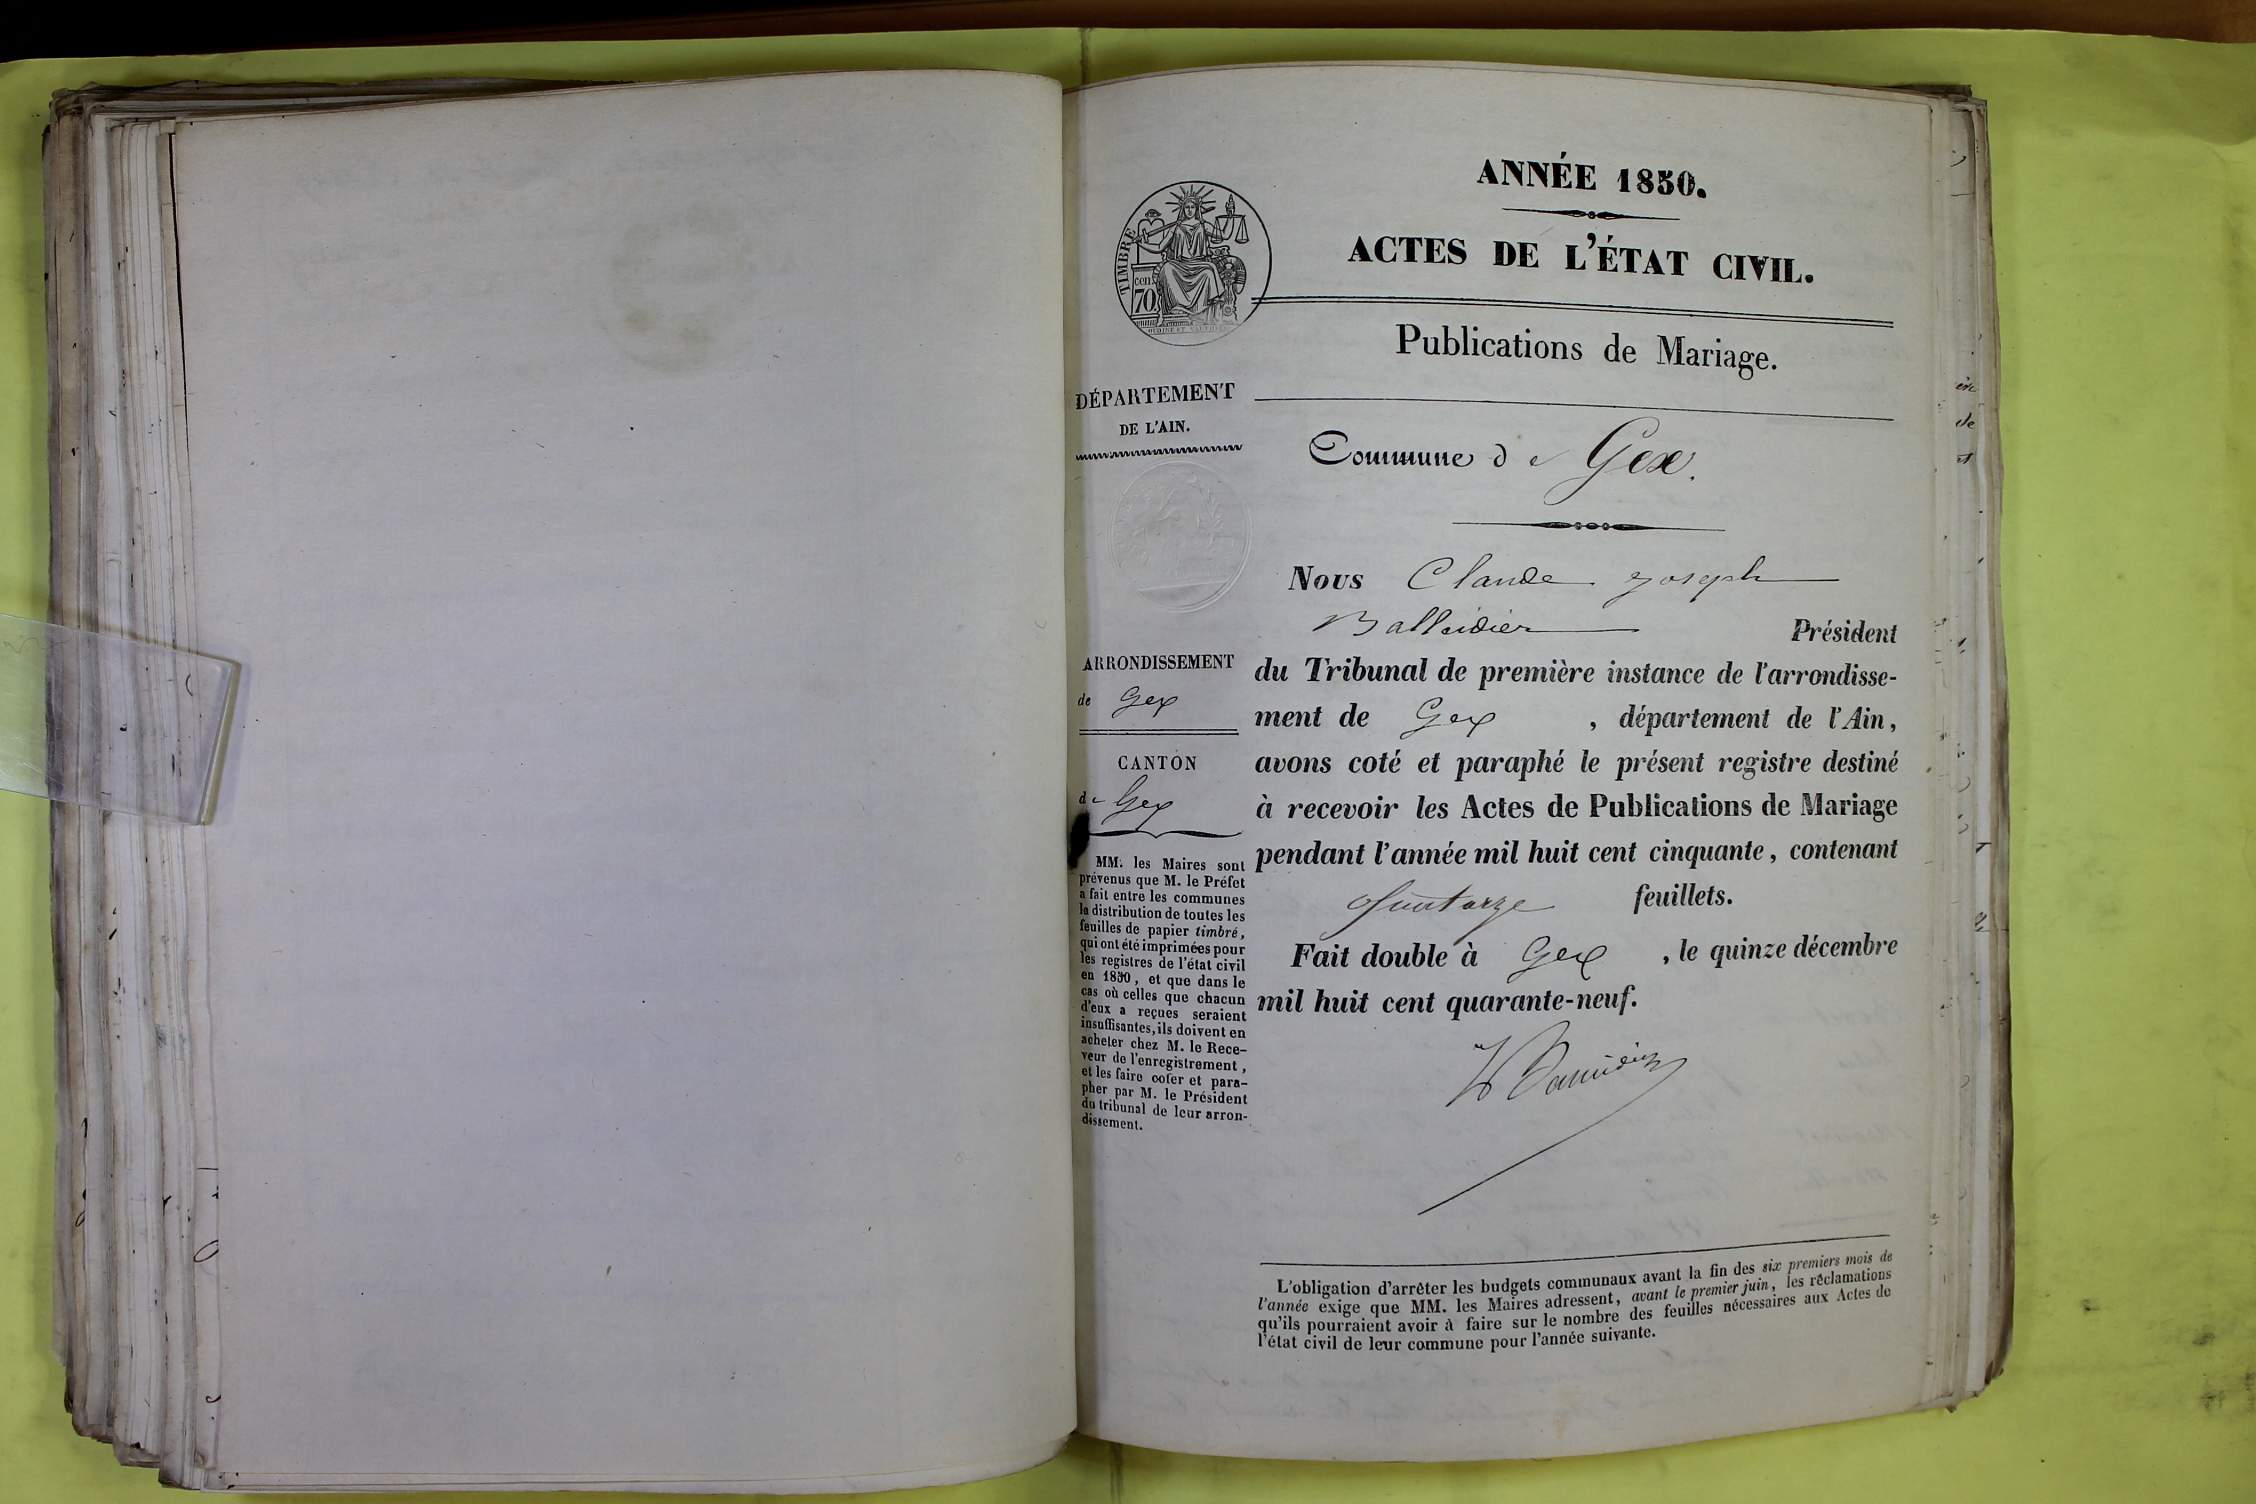 ANNÉE 1850.
ACTES DE L'ÉTAT CIVIL.
TIMBRE
cen.
70
Publications de Mariage.
DÉPARTEMENT
DE L'AIN.
Commune de Gex.
ARRONDISSEMENT
de Gex
CANTON
de Gex
MM. les Maires sont
prévenus que M. le Préfet
a fait entre les communes
la distribution de toutes les
feuilles de papier timbré,
qui ont été imprimées pour
les registres de l'état civil
en 1850, et que dans le
cas où celles que chacun
d'eux a reçues seraient
insuffisantes, ils doivent en
acheter chez M. le Rece-
veur de l'enregistrement,
et les faire coter et para-
pher par M. le Président
du tribunal de leur arron-
dissement.
Nous Claude Joseph
Balleidier Président
du Tribunal de première instance de l'arrondisse-
ment de Gex , département de l'Ain,
avons coté et paraphé le présent registre destiné
à recevoir les Actes de Publications de Mariage
pendant l'année mil huit cent cinquante, contenant
feuillets.
Fait double à Gex , le quinze décembre
mil huit cent quarante-neuf.
L'obligation d'arrêter les budgets communaux avant la fin des six premiers mois de
l'année exige que MM. les Maires adressent, avant le premier juin, les réclamations
qu'ils pourraient avoir à faire sur le nombre des feuilles nécessaires aux Actes de
l'état civil de leur commune pour l'année suivante.